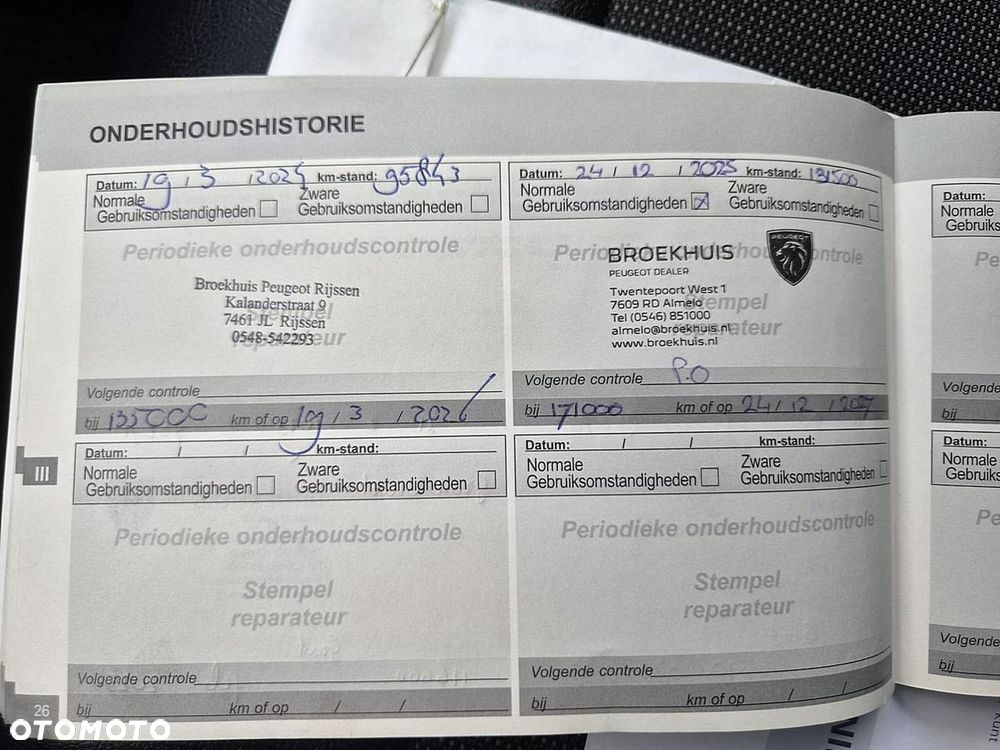 ONDERHOUDSHISTORIE
Datum: 19 / 3 / 2024 km-stand: 95843
Normale
Gebruiksomstandigheden
Zware
Gebruiksomstandigheden
Periodieke onderhoudscontrole
Broekhuis Peugeot Rijssen
Kalanderstraat 9
7461 JL Rijssen
0548-542293
Stempel
reparateur
Volgende controle
bij 135000 km of op 19 / 3 / 2026
Datum: 24 / 12 / 2025 km-stand: 131500
Normale
Gebruiksomstandigheden
Zware
Gebruiksomstandigheden
Periodieke onderhoudscontrole
PEUGEOT
BROEKHUIS
PEUGEOT DEALER
Twentepoort West 1
7609 RD Almelo
Tel (0546) 851000
almelo@broekhuis.nl
www.broekhuis.nl
Stempel
reparateur
Volgende controle P.O
bij 171000 km of op 24 / 12 / 2027
III
Datum: / / km-stand:
Normale
Gebruiksomstandigheden
Zware
Gebruiksomstandigheden
Periodieke onderhoudscontrole
Stempel
reparateur
Volgende controle
bij km of op / /
Datum: / / km-stand:
Normale
Gebruiksomstandigheden
Zware
Gebruiksomstandigheden
Periodieke onderhoudscontrole
Stempel
reparateur
Volgende controle
bij km of op / /
Datum:
Normale
Gebruiks
Pe
Volgende
bij
Datum:
Normale
Gebruiks
Pe
Volgende
bij
26
OTOMOTO